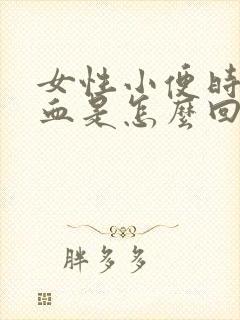 女性小便時
血是怎麼回
胖多多